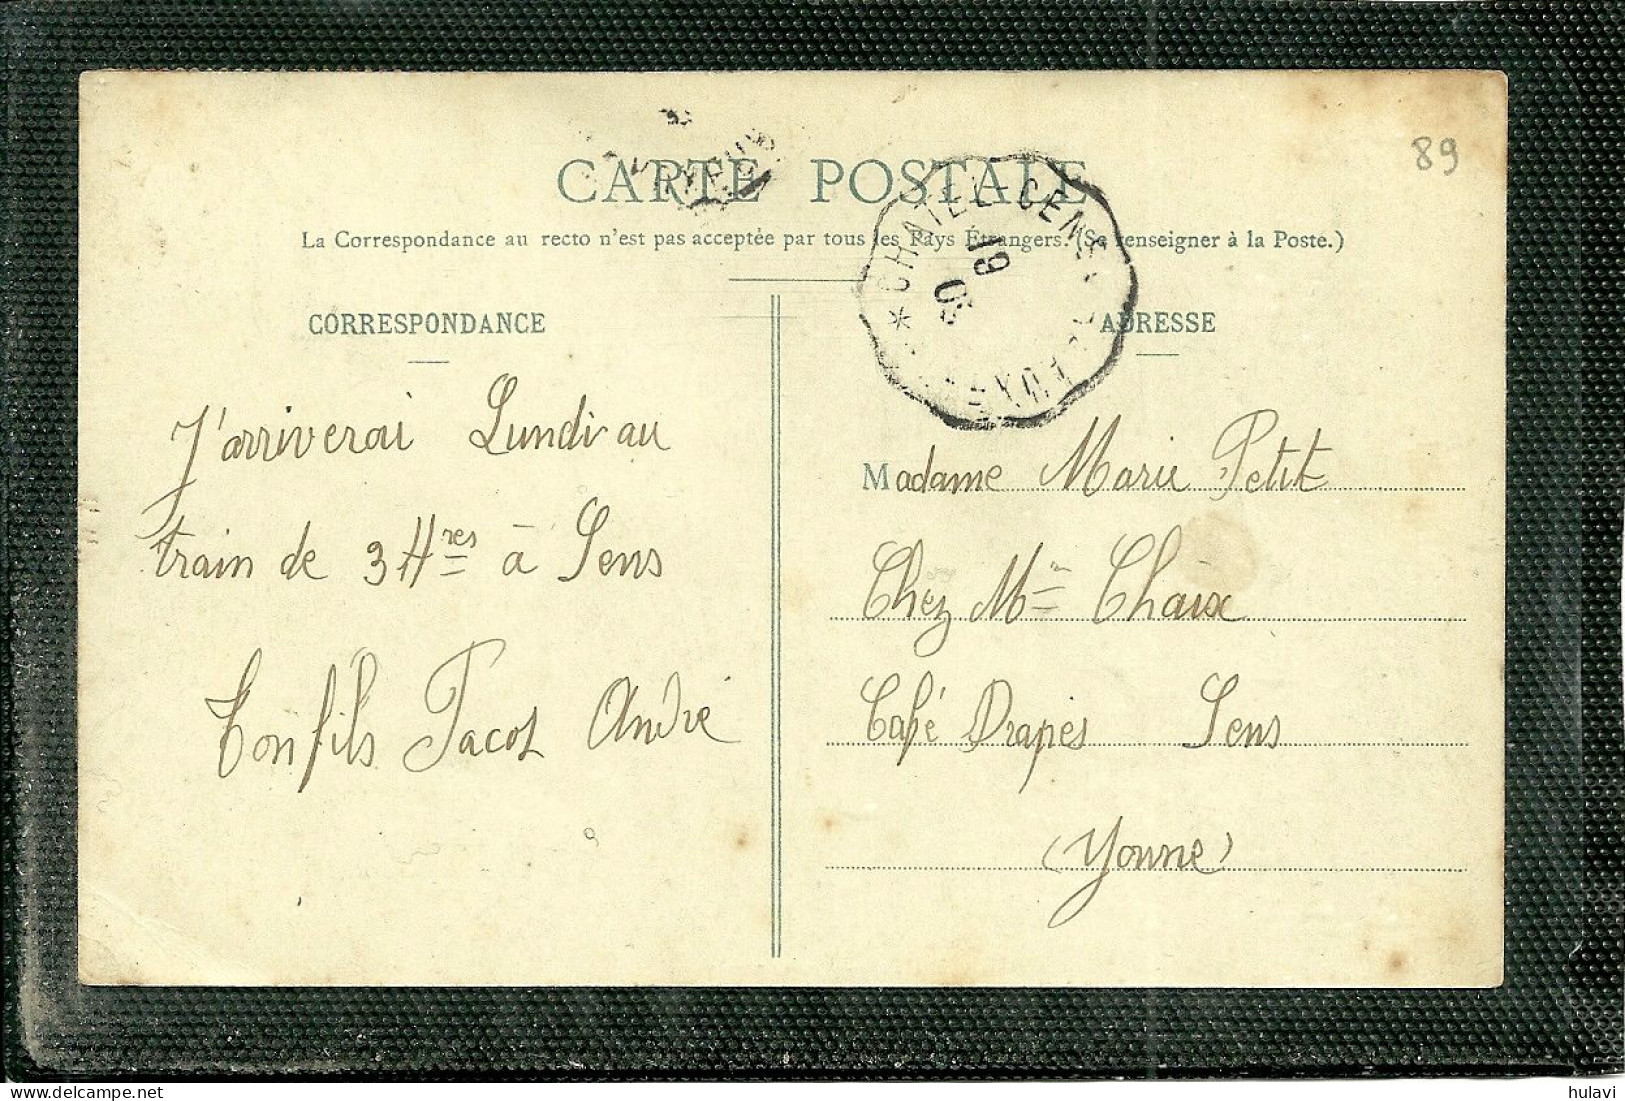 89
CARTE POSTALE
La Correspondance au recto n'est pas acceptée par tous les Pays Étrangers. (Se renseigner à la Poste.)
CHATEL-CENS
19
CORRESPONDANCE
ADRESSE
J'arriverai Lundi au
train de 3 Hres à Sens
Ton fils Jacot André
Madame Marie Petit
Chez Mme Chaix
Café Drapés Sens
(Yonne)
hulavi